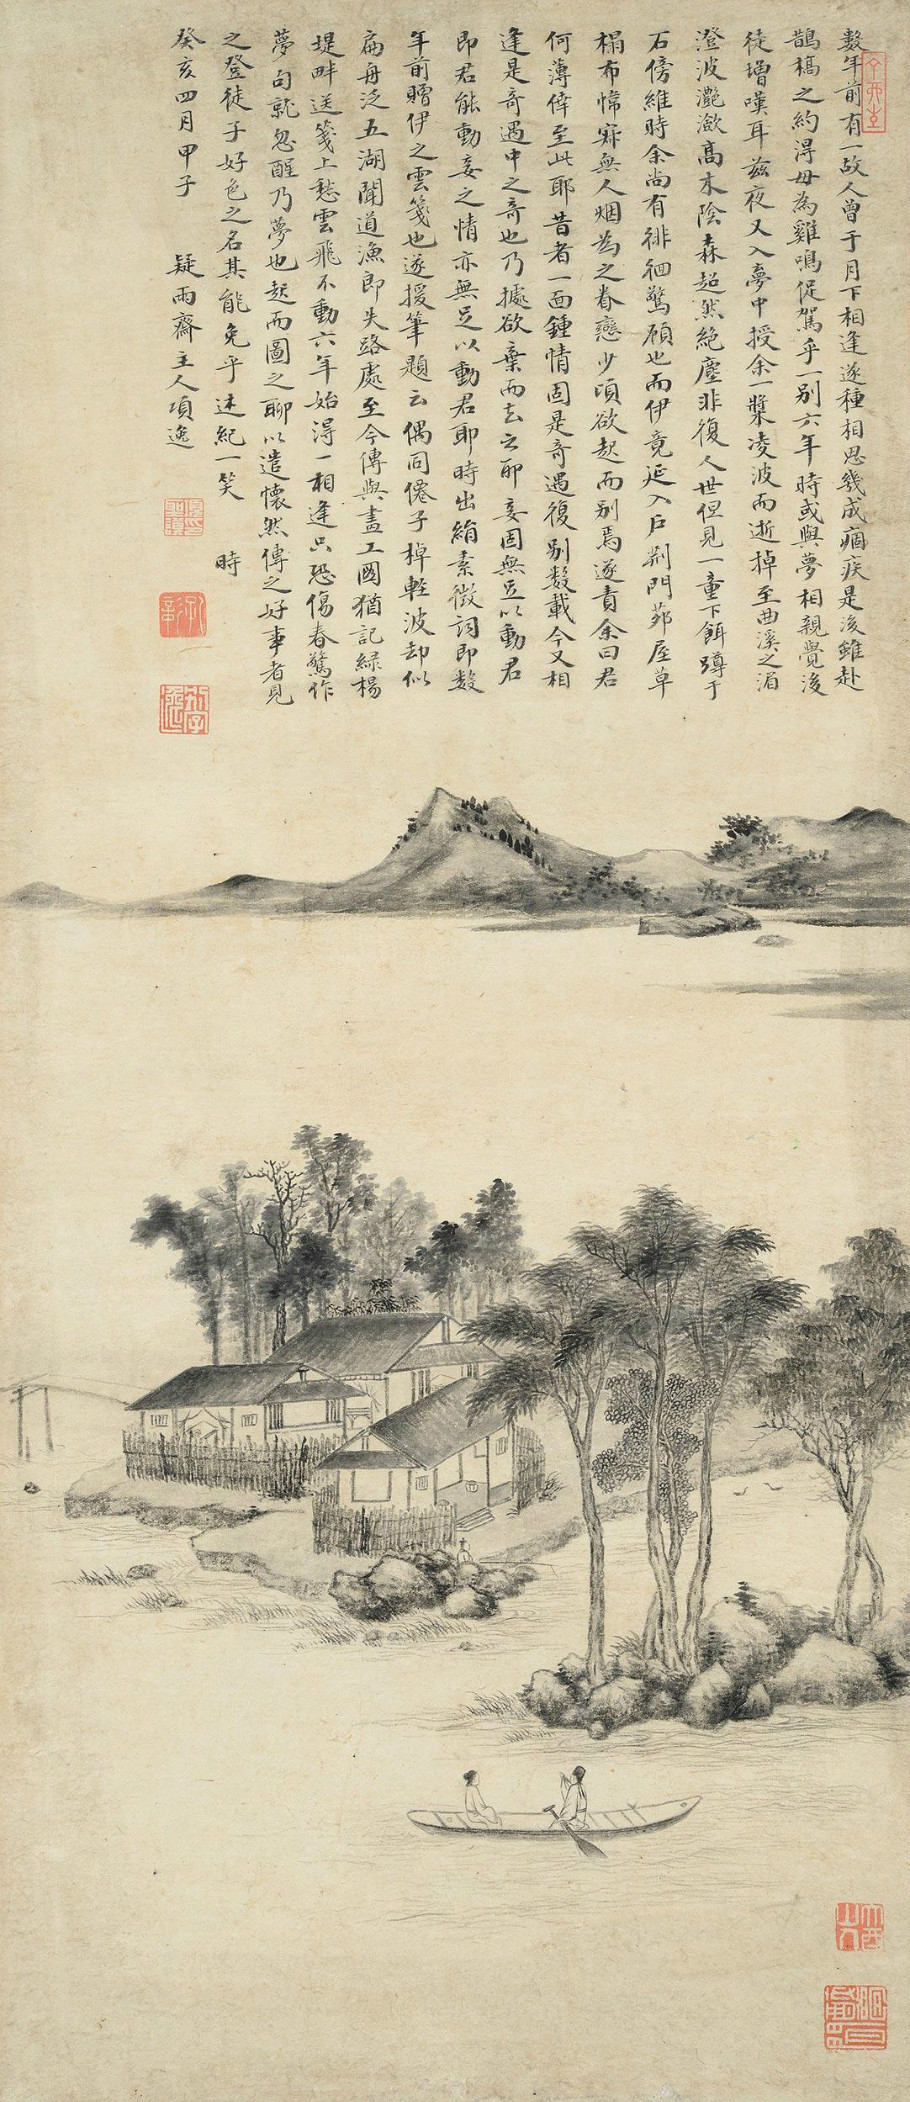 數年前有一故人曾于月下相逢遂種相思幾成痼疾是後雖赴
鵲橋之約得毋為雞鳴促駕乎一別六年時或與夢相親覺後
徒增嘆耳茲夜又入夢中授余一槳凌波而逝棹至曲溪之湄
澄波灔瀲高木陰森超然絕塵非復人世但見一童下餌蹲于
石傍維時余尚有徘徊驚顧也而伊竟延入戶荊門茆屋草
榻布幃寂無人烟為之眷戀少頃欲起而別焉遂責余曰君
何薄倖至此耶昔者一面鍾情固是奇遇復別數載今又相
逢是奇遇中之奇也乃據欲棄而去之耶妾固無足以動君
即君能動妾之情亦無足以動君耶時出絹素微詞即數
年前贈伊之雲箋也遂援筆題云偶同僊子棹輕波却似
扁舟泛五湖聞道漁郎失路處至今傳與畫工圖猶記綠楊
堤畔送箋上愁雲飛不動六年始得一相逢只恐傷春驚作
夢句就忽醒乃夢也起而圖之聊以遣懷然傳之好事者見
之登徒子好色之名其能免乎述紀一笑 時
癸亥四月甲子 疑雨齋主人項逵